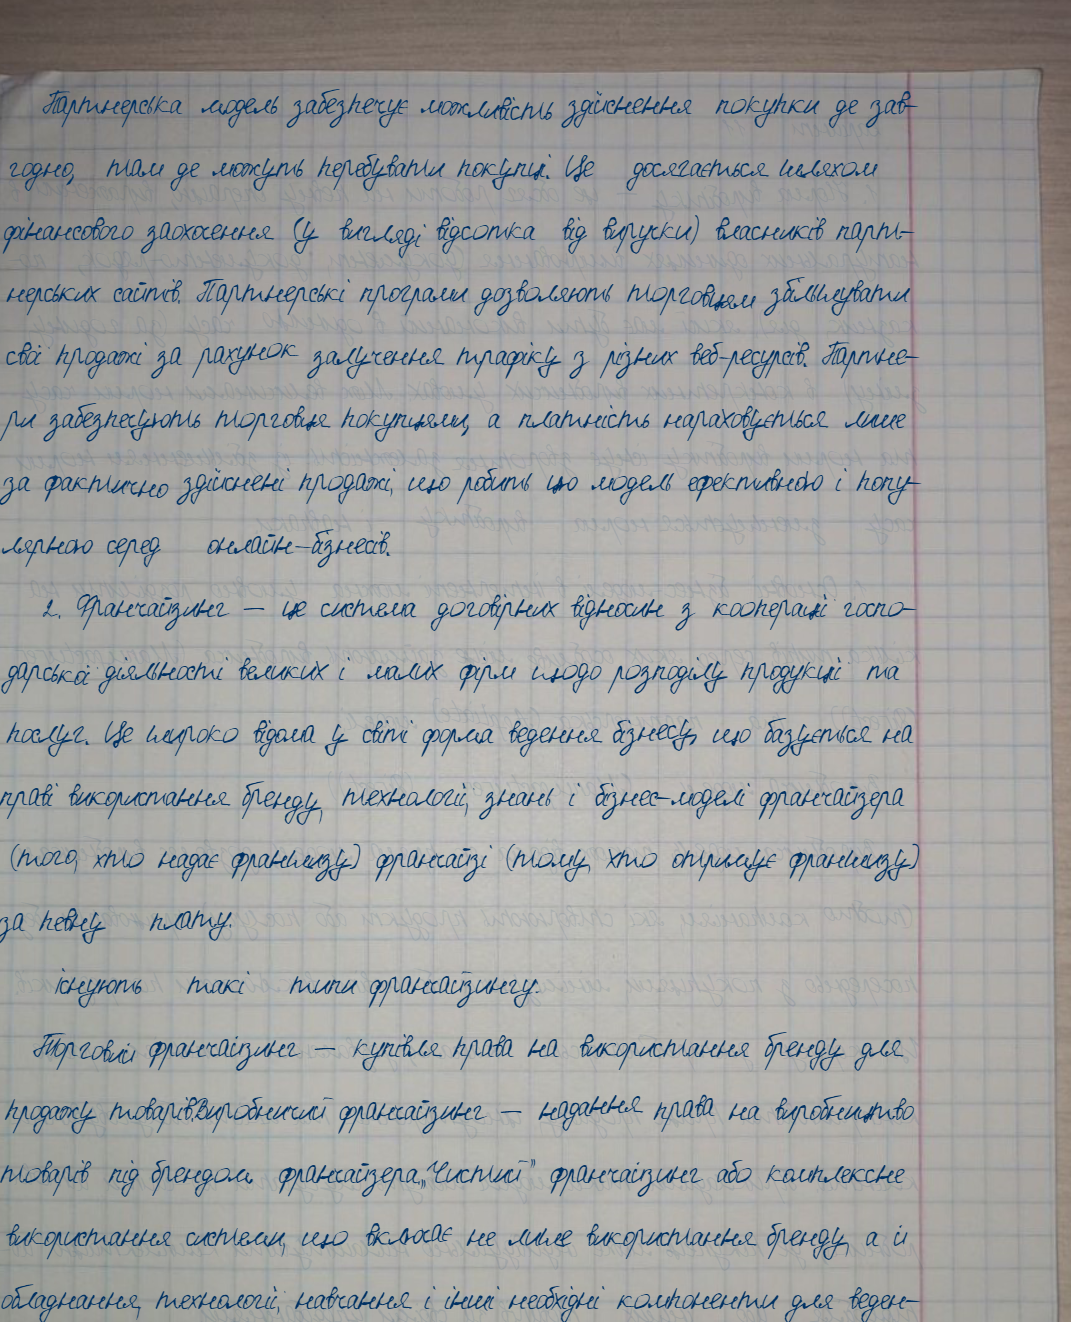 Партнерська модель забезпечує можливість здійснення покупки де зав-
годно, там де можуть перебувати покупці. Це досягається шляхом
фінансового заохочення (у вигляді відсотка від виручки) власників парт-
нерських сайтів. Партнерські програми дозволяють торговцям збільшувати
свої продажі за рахунок залучення трафіку з різних веб-ресурсів. Партне-
ри забезпечують торговця покупцями, а платність нараховується лише
за фактично здійснені продажі, що робить цю модель ефективною і попу-
лярною серед онлайн-бізнесів.
2. Франчайзинг – це система договірних відносин з кооперації госпо-
дарської діяльності великих і малих фірм щодо розподілу продукції та
послуг. Це широко відома у світі форма ведення бізнесу, що базується на
праві використання бренду, технології, знань і бізнес-моделі франчайзера
(того, хто надає франшизу) франчайзі (тому, хто отримує франшизу)
за певну плату.
Існують такі типи франчайзингу:
Торговий франчайзинг – купівля права на використання бренду для
продажу товарів. Виробничий франчайзинг – надання права на виробництво
товарів під брендом франчайзера. „Чистий" франчайзинг або комплексне
використання системи, що включає не лише використання бренду, а й
обладнання, технології, навчання і інші необхідні компоненти для веден-